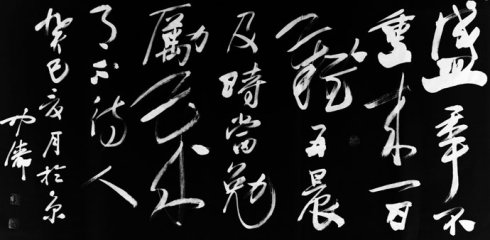 盛年不
重来一日
難再晨
及時當勉
勵歲
月不待人
癸巳夏月於京